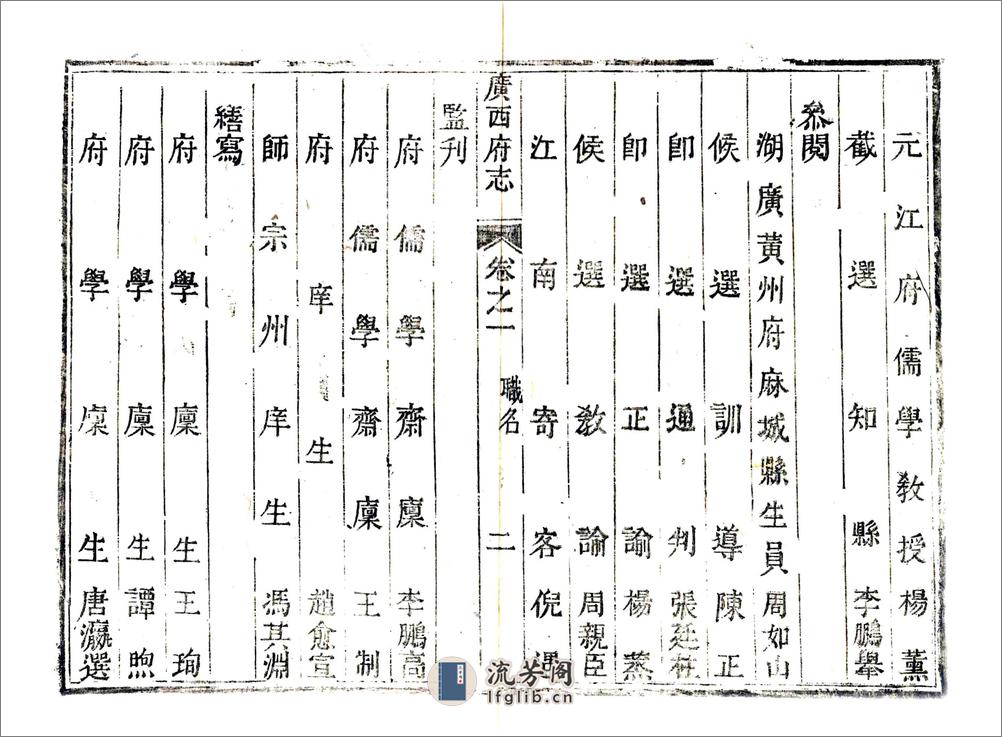 元江府儒學教授楊薰
截選知縣李鵬舉
叅閱
湖廣黃州府麻城縣生員周如山
候選訓導陳正
即選通判張廷
即選正諭楊蒸
候選教諭周親臣
江南寄客倪
廣西府志 卷之一 職名 二
監刊
府儒學齋廩李鵬高
府儒學齋廩王制
府庠生趙愈宣
師宗州庠生馮其淵
繕寫
府學廩生王珣
府學廩生譚煦
府學廩生唐瀛選
流芳阁
lfglib.cn